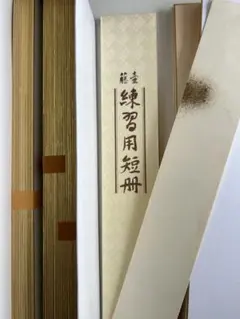 藤壺
練習用短册